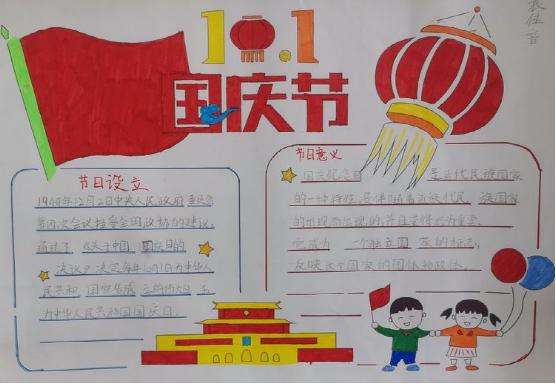 10.1
国庆节
节日设立
1949年12月2日中央人民政府委员会
第四次会议接受全国政协的建议,
通过了 《关于中国 国庆日的
决议》决定每年10月1日为中华人
民共和 国宣告成 立的 日
为中华人民共和国国庆日。
节日意义
国庆纪念日 是近代民族国家
的一种特征,是伴随着近代民 族国家
的出现而出现的,并且变得尤为重要。
它成为 一个独立国 家的标志,
反映这个国家的国体和政体。